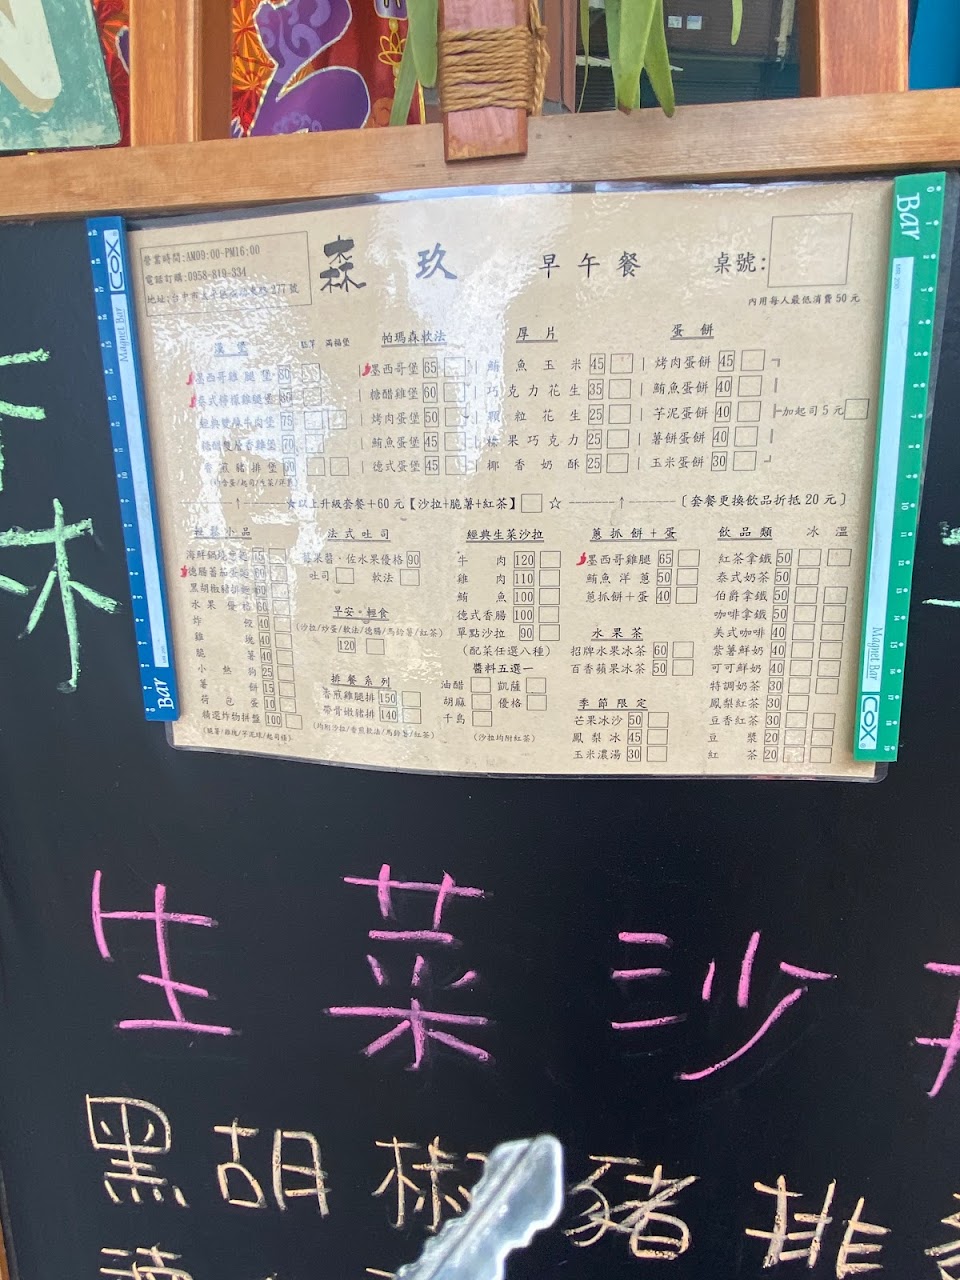 營業時間:AM09:00-PM16:00
電話訂購:0958-819-334
277號
森 玖 早午餐 桌號:
內用每人最低消費50元
漢堡 滿福堡
墨西哥雞腿堡 80
泰式檸檬雞腿堡
經典雙層牛肉堡 75
70
香煎豬排堡
帕瑪森軟法
墨西哥堡 65
糖醋雞堡 60
烤肉蛋堡 50
鮪魚蛋堡 45
德式蛋堡 45
厚片
鮪魚玉米 45
巧克力花生 35
顆粒花生 25
榛果巧克力 25
椰香奶酥 25
蛋餅
烤肉蛋餅 45
鮪魚蛋餅 40
芋泥蛋餅 40
薯餅蛋餅 40
玉米蛋餅 30
加起司5元
☆以上升級套餐+60元【沙拉+脆薯+紅茶】 ☆
〔套餐更換飲品折抵20元〕
輕鬆小品
水果優格 60
炸餃 40
雞塊 40
脆薯 40
小熱狗 25
薯餅 15
荷包蛋 10
精選炸物拼盤 100
(脆薯/雞塊/芋泥球/起司條)
法式吐司
佐水果優格 90
吐司 軟法
早安。輕食
(沙拉/炒蛋/軟法/德腸/馬鈴薯/紅茶)
120
排餐系列
香煎雞腿排 150
帶骨嫩豬排 140
(均附沙拉/香煎軟法/馬鈴薯/紅茶)
經典生菜沙拉
牛肉 120
雞肉 110
鮪魚 100
德式香腸 100
單點沙拉 90
(配菜任選八種)
醬料五選一
油醋 凱薩
胡麻 優格
千島
(沙拉均附紅茶)
蔥抓餅+蛋
墨西哥雞腿 65
鮪魚洋蔥 50
蔥抓餅+蛋 40
水果茶
招牌水果冰茶 60
百香蘋果冰茶 50
季節限定
芒果冰沙 50
鳳梨冰 45
玉米濃湯 30
飲品類 冰 溫
紅茶拿鐵 50
泰式奶茶 50
伯爵拿鐵 50
咖啡拿鐵 50
美式咖啡 40
紫薯鮮奶 40
可可鮮奶 40
特調奶茶 30
鳳梨紅茶 30
豆香紅茶 30
豆漿 20
紅茶 20
Bar
COX
Magnet Bar
Bar
Bar
Magnet Bar
COX
生菜沙
黑胡椒豬排